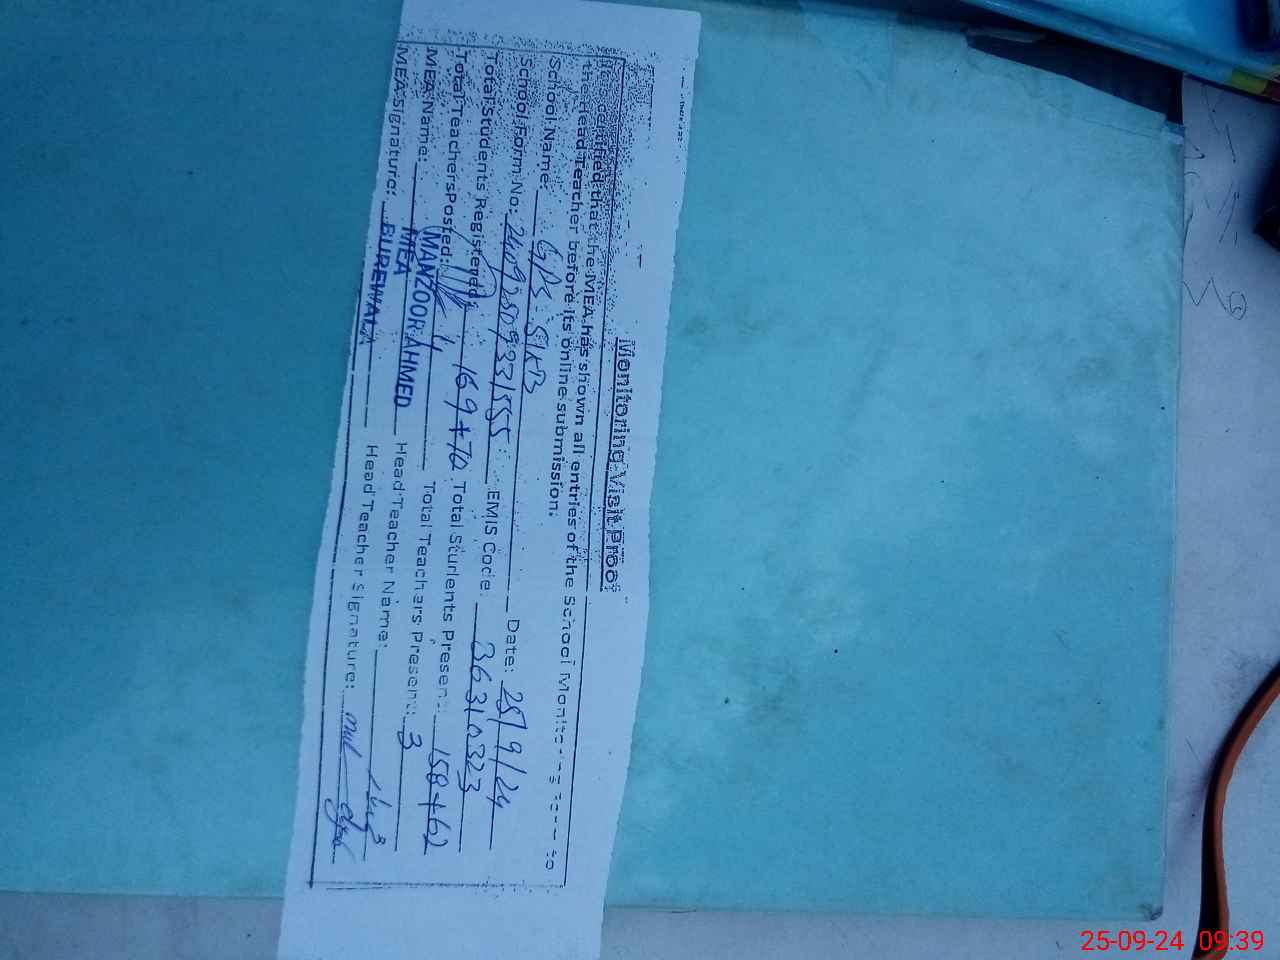 Monitoring Visit Proof
It is certified that the MEA has shown all entries of the School Monitoring Form to
the Head Teacher before its online submission.
School Name: GPS 51KB
School Form No: Date: 25/9/24
Total Students Registered: 169+70 EMIS Code: 36310323
Total Teachers Posted: 4 Total Students Present: 158+62
MEA Name: MANZOOR AHMED Total Teachers Present: 3
MEA Head Teacher Name:
MEA Signature: BUREWALA Head Teacher Signature:
25-09-24 09:39